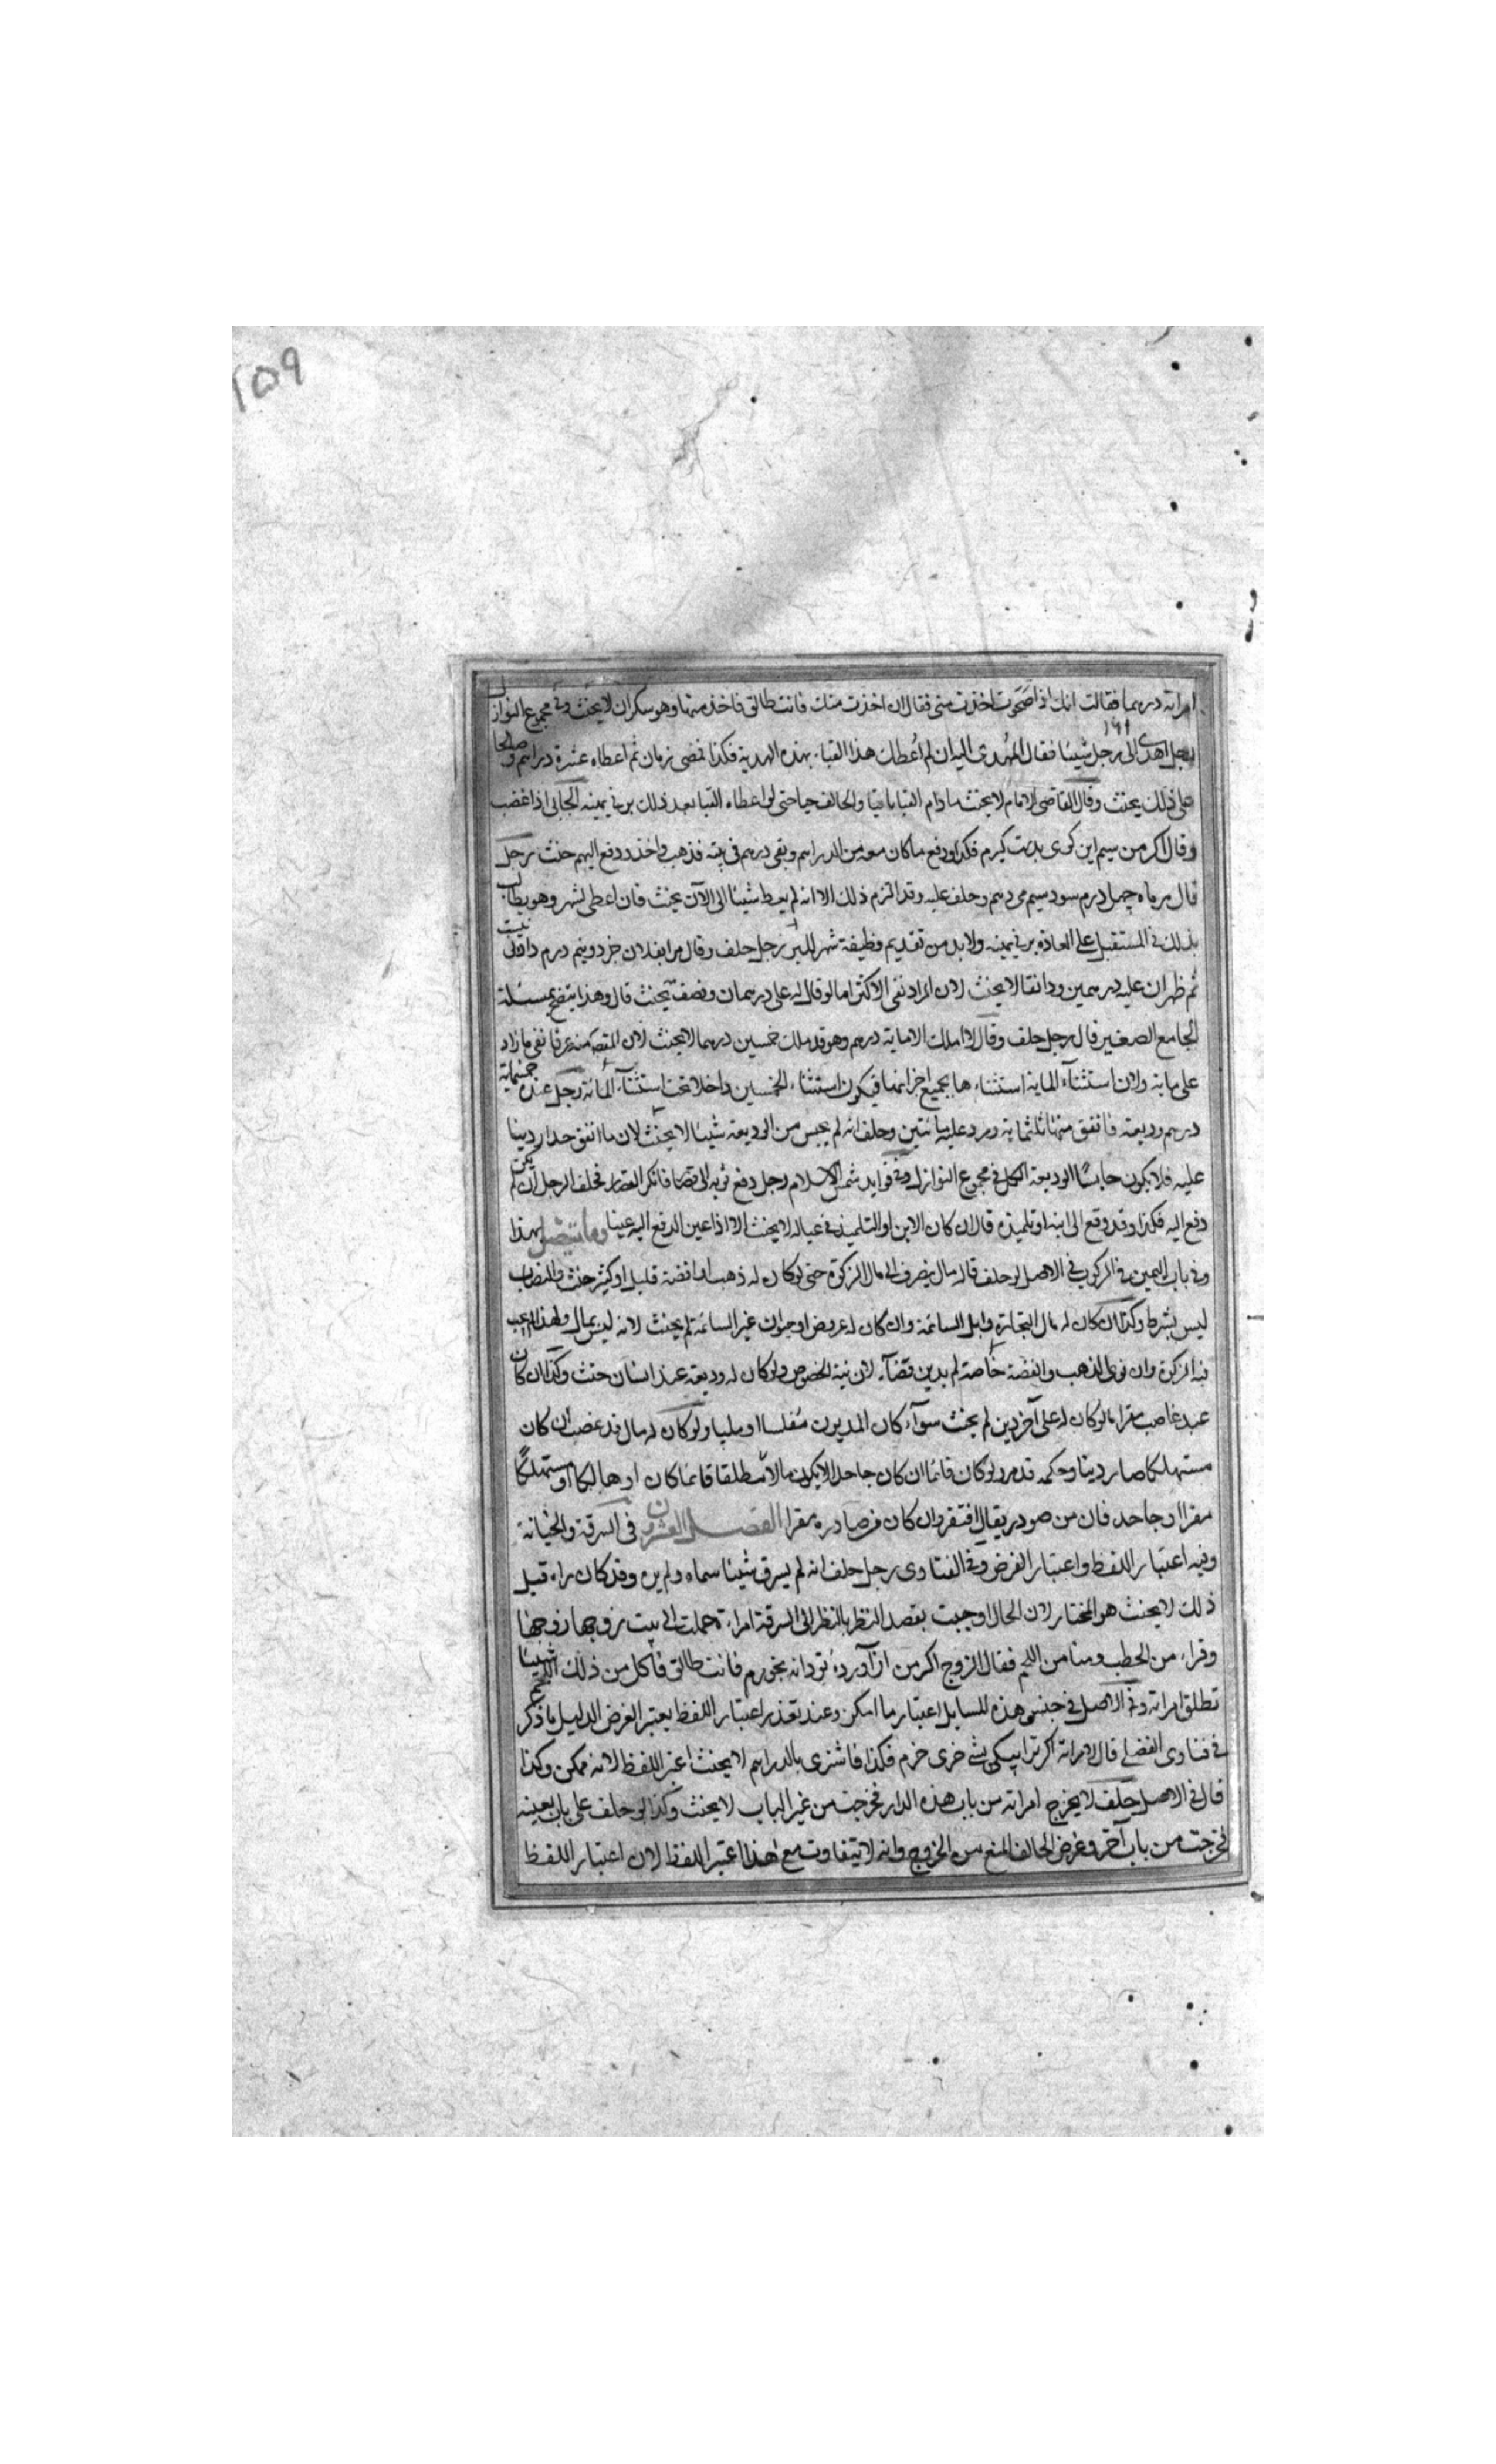 ١٥٩
امراته درهما فقالت انك اذا صحوت اخذت منى فقال ان اخذت منك فانت طالق فاخذ منها وهو سكران لا يحنث وفى مجموع النوازل
١٦١
رجل اهدى الى رجل شيئا فقال المهدى اليه ان لم اعطك هذا القباء بهذه الهدية فكذا فمضى زمان ثم اعطاه عشرة دراهم وصالحا
على ذلك يحنث وقال القاضى الامام لا يحنث مادام القبا باقيا والحالف حيا حتى لو اعطاه القبا بعد ذلك بر فى يمينه الجابى اذا غضب
وقال اكر من سيم اين كوى بدست كيرم فكذا ودفع ما كان معه من الدراهم وبقى درهم فى بيته فذهب واخذ ودفع اليهم حنث رجل
قال هر ماه چهل درم سود سيم مى دهم وحلف عليه وقد التزم ذلك الا انه لم يعط شيئا الى الآن يحنث فان اعطى لشهر وهو يطالب
بذلك فى المستقبل على العادة بر فى يمينه ولا بد من تقديم وظيفة شهر للبر رجل حلف وقال مرا بفلان جز دو نيم درم دادنى نيست
ثم ظهر ان عليه درهمين ودانقا لا يحنث لان المراد نفى الاكثر اما لو قال له على درهمان ونصف يحنث قال وهذا يتضح بمسئلة
الجامع الصغير قال رجل حلف وقال لا املك الا ماية درهم وهو قد ملك خمسين درهما لا يحنث لان المقصد منه عرفا نفى ما زاد
على ماية ولان استثناء الماية استثناءها بجميع اجزائها فيكون استثناء الخمسين داخلا تحت استثناء المائة رجل عنده خمسماية
درهم وديعة فانفق منها ثلثماية ورد عليه مائتين وحلف انه لم يحبس من الوديعة شيئا لا يحنث لان ما انفق صار دينا
عليه فلا يكون حابسا الوديعة الكل فى مجموع النوازل وفى فوايد شمس الاسلام رجل دفع ثوبه الى قصار فانكر القصار فحلف الرجل ان لم يكن
دفع اليه فكذا وقد وقع الى ابنه او تلميذه قال ان كان الابن او التلميذ فى عياله لا يحنث الا اذا عين الدفع اليه عينا وما يتصل بهذا
وفى باب اليمين فى الركوب فى الاصل لو حلف ما له مال ينصرف الى مال الزكوة حتى لو كان له ذهب او فضة قليل او كثير حنث والنصاب
ليس بشرط وكذا ان كان له مال التجارة وابل السائمة وان كان له عروض او حيوان غير السائمة لم يحنث لانه ليس بمال ولهذا لا يجب
فيه الزكوة وان نوى الذهب والفضة خاصة لم يدين قضاء لان نية الخصوص ولو كان له وديعة عند انسان حنث وكذا ان كان
عبد غاصب مقرا ما لو كان له على آخر دين لم يحنث سواء كان المديون مفلسا او مليا ولو كان له مال قد غصب ان كان
مستهلكا صار دينا وحكمه قد مر ولو كان قائما ان كان جاحدا لا يكون مالا مطلقا قائما كان او هالكا او مستهلكا
مقرا او جاحد فان من صودر يقال افتقر وان كان مصادره مقرا الفصل العشرون فى السرقة والخيانة
وفيه اعتبار اللفظ واعتبار الغرض وفى الفتاوى رجل حلف انه لم يسرق شيئا سماه ولم يره وقد كان راه قبل
ذلك لا يحنث هو المختار لان الحال اوجبت بقصد النظر بالنظر الى السرقة امراة حملت الى بيت زوجها زوجها
وقراء من الحطب ومنا من اللحم فقال الزوج اكر من از آورده تو دانه بخورم فانت طالق فاكل من ذلك اللحم شيئا
تطلق امراته وفى الاصل فى جنس هذه المسايل اعتبار ما امكن وعند تعذر اعتبار اللفظ يعتبر الغرض الدليل ما ذكر
فى فتاوى الفضلى قال لامراته اكر ترا بيكى شئ خرى خرم فكذا فاشترى بالدراهم لا يحنث اعتبر اللفظ لانه ممكن وكذا
قال فى الاصل حلف لا يخرج امراته من باب هذه الدار فخرجت من غير الباب لا يحنث وكذا لو حلف على باب بعينه
فخرجت من باب آخر وغرض الحالف المنع من الخروج وانه لا يتفاوت مع هذا اعتبر اللفظ لان اعتبار اللفظ